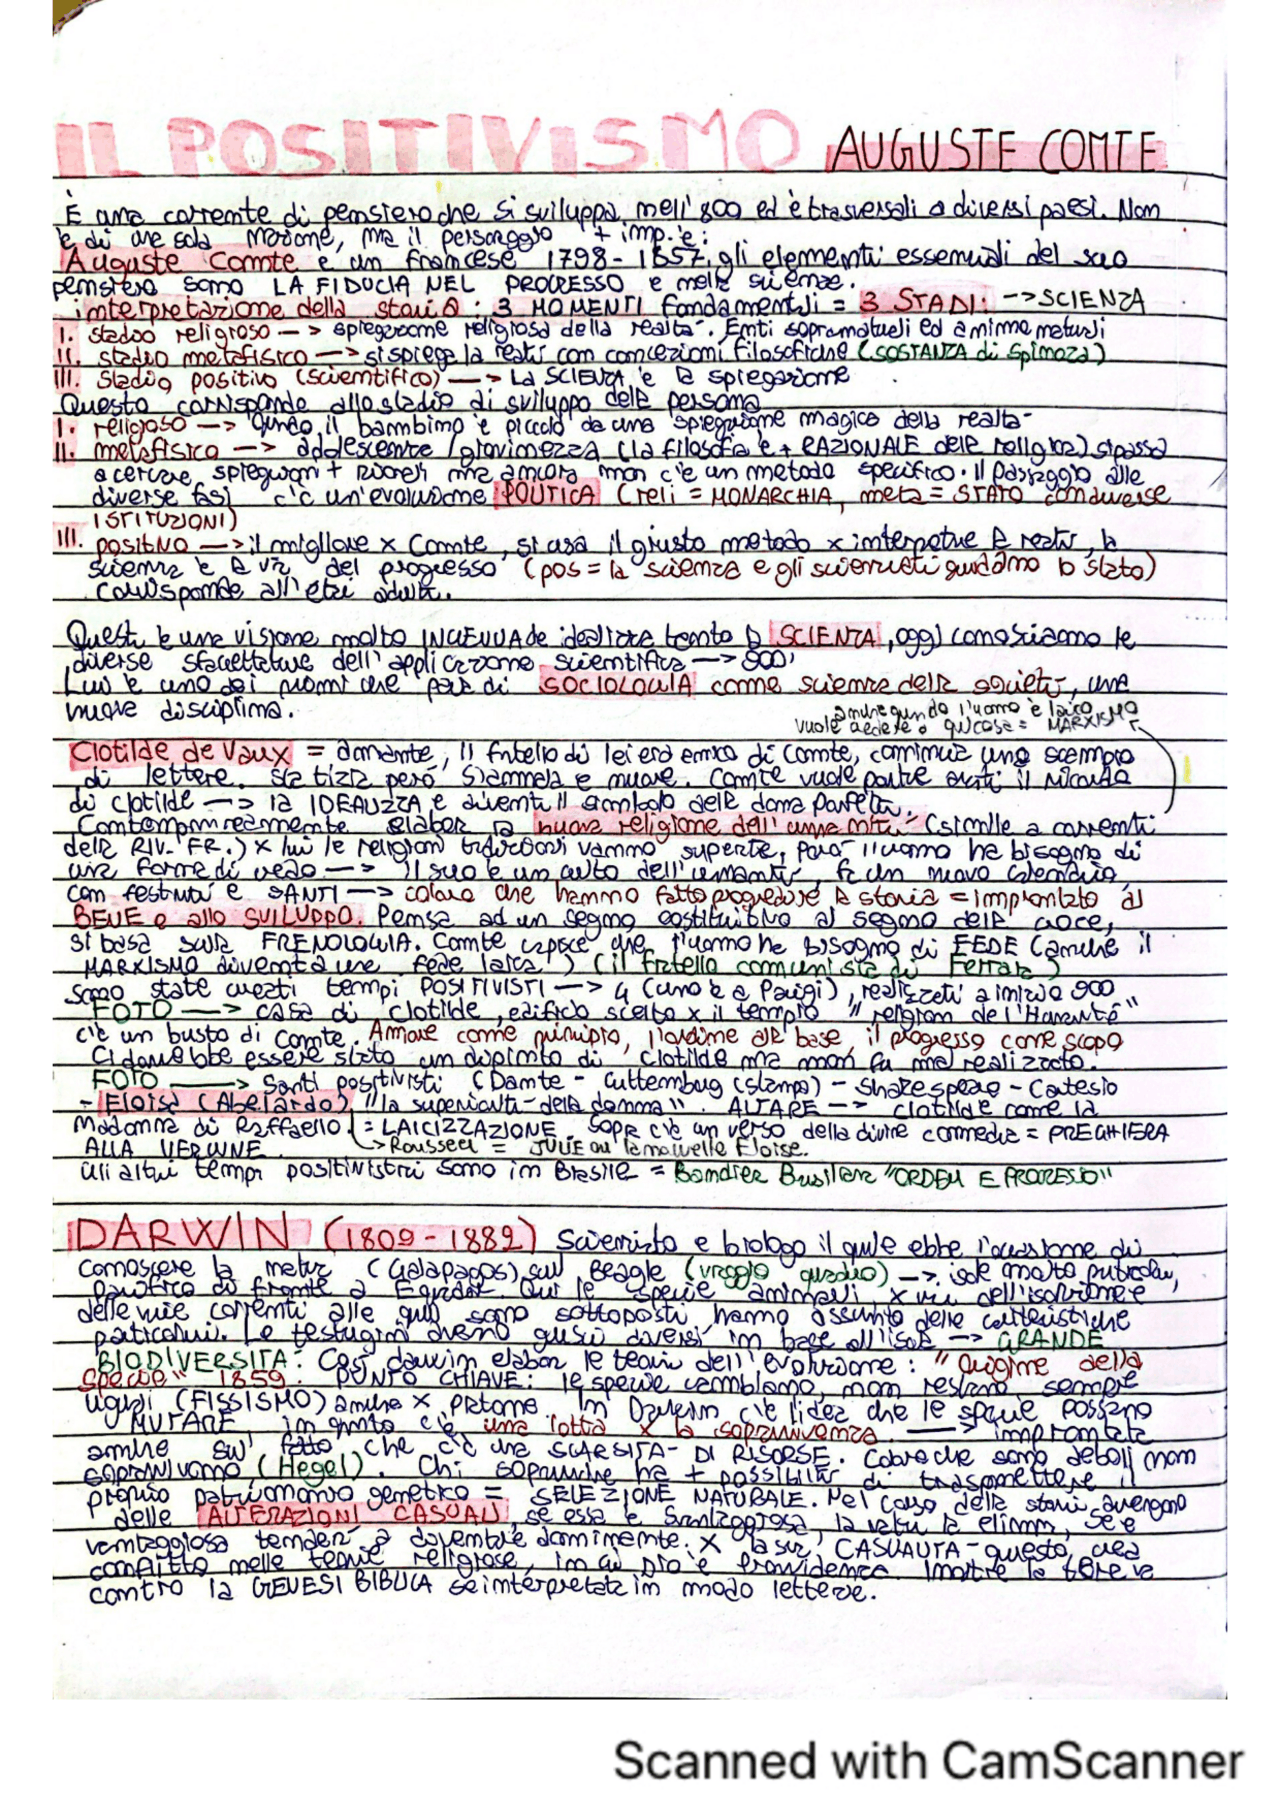 IL POSITIVISMO AUGUSTE COMTE
È una corrente di pensiero che si sviluppa nell'800 ed è trasversali a diversi paesi. Non
è di una sola nazione, ma il personaggio + imp. è:
Auguste Comte è un francese 1798-1857, gli elementi essenziali del suo
pensiero sono LA FIDUCIA NEL PROGRESSO e nelle scienze.
interpretazione della storia: 3 MOMENTI fondamentali = 3 STADI: -> SCIENZA
I. stadio religioso -> spiegazione religiosa della realtà. Enti sopranaturali ed anime naturali
II. stadio metafisico -> si spiega la realtà con concezioni filosofiche (SOSTANZA di Spinoza)
III. Stadio positivo (scientifico) -> La SCIENZA è la spiegazione
Questo corrisponde allo stadio di sviluppo della persona
I. religioso -> quando il bambino è piccolo da una spiegazione magica della realtà
II. metafisico -> adolescente/giovinezza (la filosofia è + RAZIONALE delle religioni) si passa
a cercare spiegazioni + razionali ma ancora non c'è un metodo specifico. Il passaggio alle
diverse fasi c'è un'evoluzione POLITICA (reli = MONARCHIA, meta = STATO con diverse
ISTITUZIONI)
III. positivo -> il migliore x Comte, si usa il giusto metodo x interpretare la realtà, la
scienza è la via del progresso (pos = la scienza e gli scienziati guidano lo stato)
corrisponde all'età adulta.
Questa è una visione molto INGENUA ed idealizza tanto la SCIENZA, oggi conosciamo le
diverse sfaccettature dell'applicazione scientifica -> 800
Lui è uno dei primi che parla di SOCIOLOGIA come scienza della società, una
nuova disciplina.
anche quando l'uomo è laico
vuole credere a qualcosa = MARXISMO
Clotilde de Vaux = amante, il fratello di lei era amico di Comte, comincia uno scambio
di lettere. sta tizia però s'ammala e muore. Comte vuole portare avanti il ricordo
di Clotilde -> la IDEALIZZA e diventa il simbolo della donna perfetta.
Contemporaneamente elabora la nuova religione dell'umanità (simile a correnti
della RIV. FR.) x lui le religioni tradizionali vanno superate, però l'uomo ha bisogno di
una forma di credo -> il suo è un culto dell'umanità, fa un nuovo calendario,
con festività e SANTI -> coloro che hanno fatto progredire la storia = improntato al
BENE e allo SVILUPPO. Pensa ad un segno sostitutivo al segno della croce,
si basa sulla FRENOLOGIA. Comte capisce che l'uomo ha bisogno di FEDE (anche il
MARXISMO diventa una fede laica) (il fratello comunista di Ferrara)
sono state creati tempi POSITIVISTI -> 4 (uno è a Parigi), realizzati a inizio 900
FOTO -> casa di Clotilde, edificio scelto x il tempio "religion de l'Humanité"
c'è un busto di Comte. Amore come principio, l'ordine alla base, il progresso come scopo
Ci dovrebbe essere stato un dipinto di Clotilde ma non fu mai realizzato.
FOTO -> Santi positivisti (Dante - Guttemburg (stampa) - Shakespeare - Cartesio
- Eloisa (Abelardo) "la superiorità della donna". ALTARE -> Clotilde come la
Madonna di Raffaello = LAICIZZAZIONE. Sopra c'è un verso della divina commedia = PREGHIERA
ALLA VERGINE. -> Rousseau = JULIE ou la nouvelle Eloise.
Gli altri tempi positivistici sono in Brasile = Bandiera Brasiliana "ORDEM E PROGRESSO"
DARWIN (1809-1882) Scienziato e biologo il quale ebbe l'occasione di
conoscere la natura (Galapagos) sul Beagle (viaggio guidato) -> isole molto particolari,
Pacifico di fronte a Equador. Qui le specie animali x via dell'isolamento e
delle varie correnti alle quali sono sottoposti hanno assunto delle caratteristiche
particolari. Le testuggini avevano gusci diversi in base all'isola -> GRANDE
BIODIVERSITÀ. Così Darwin elabora le teorie dell'evoluzione: "Origine della
specie" 1859. PUNTO CHIAVE: le specie cambiano, non restano sempre
uguali (FISSISMO) anche x Platone. In Darwin c'è l'idea che le specie possano
MUTARE in quanto c'è una lotta x la sopravvivenza. -> improntata
anche sul fatto che c'è una SCARSITÀ DI RISORSE. Coloro che sono deboli non
sopravvivono (Hegel). Chi sopravvive ha + possibilità di trasmettere il
proprio patrimonio genetico = SELEZIONE NATURALE. Nel corso della storia avvengono
delle ALTERAZIONI CASUALI, se essa è svantaggiosa, la natura la elimina, se è
vantaggiosa tenderà a diventare dominante. x la sua CASUALITÀ questo crea
conflitto nelle teorie religiose, in cui Dio è provvidenza. Inoltre la teoria va
contro la GENESI BIBLICA se interpretata in modo letterale.
Scanned with CamScanner